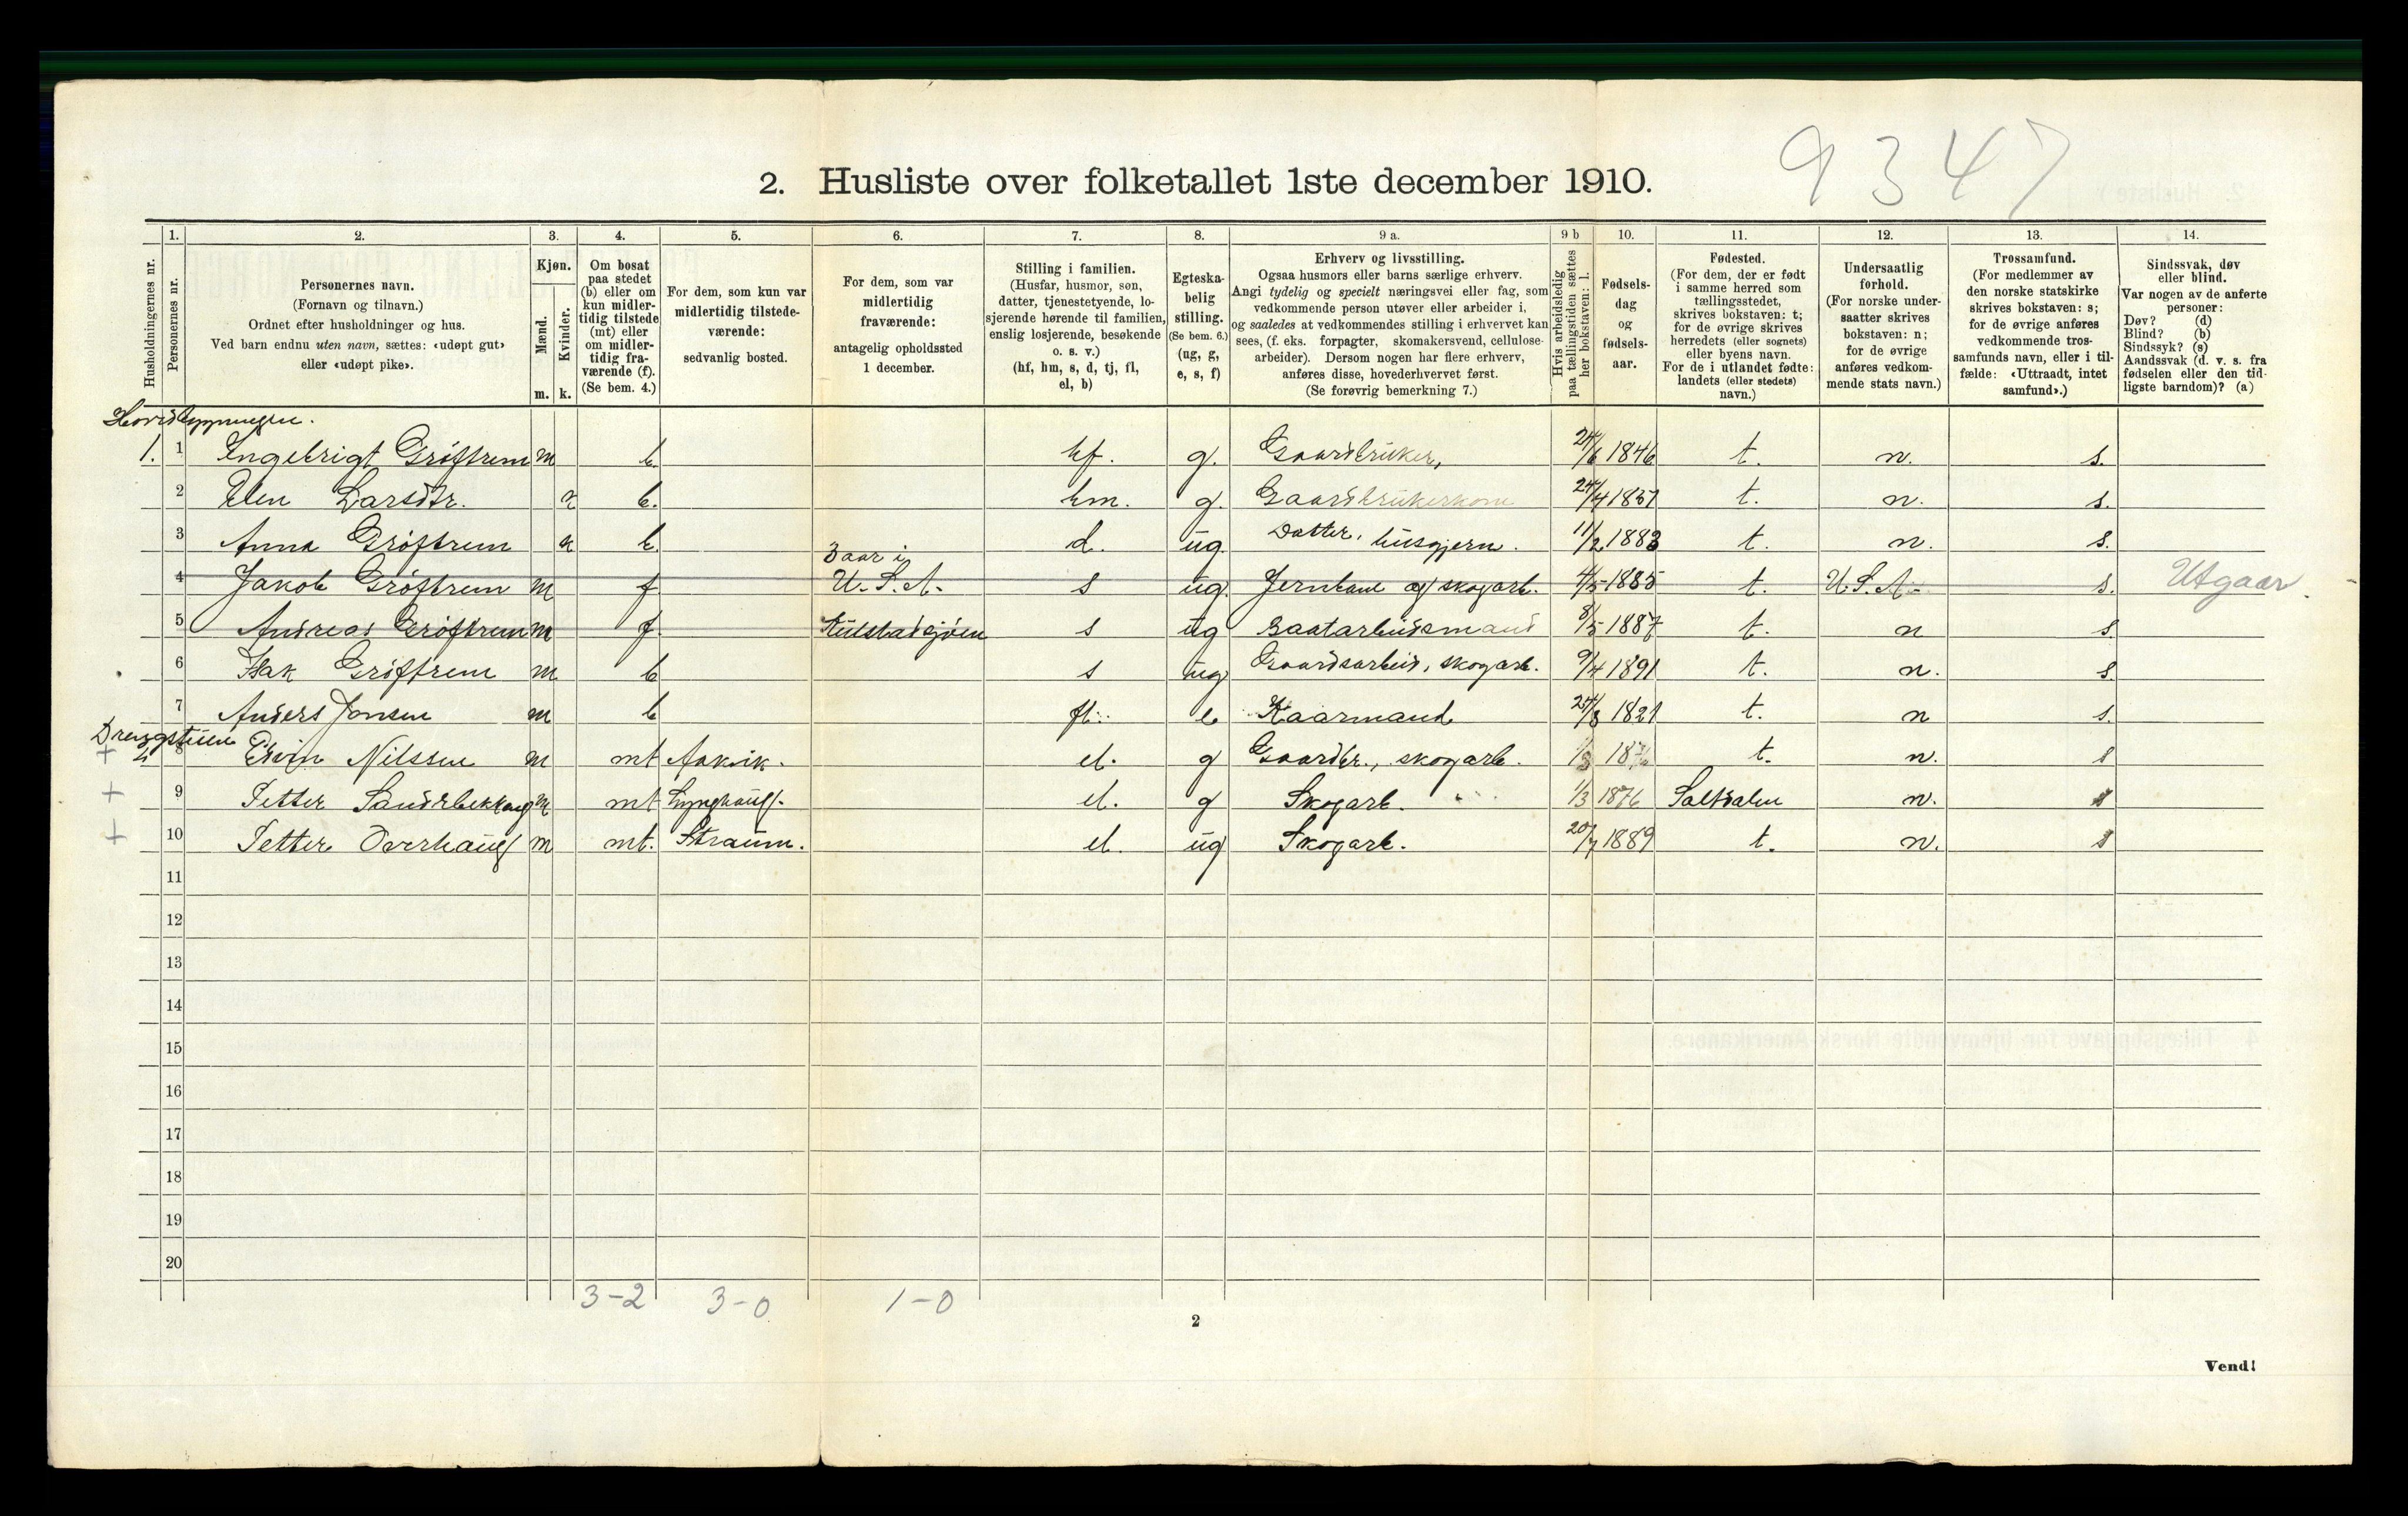 9 3 4 7
2. Husliste over folketallet 1ste december 1910.
1. 2. 3. 4. 5. 6. 7. 8. 9 a. 9 b 10. 11. 12. 13. 14.
Husholdningernes nr.
Personernes nr.
Personernes navn.
(Fornavn og tilnavn.)
Ordnet efter husholdninger og hus.
Ved barn endnu uten navn, sættes: «udøpt gut»
eller «udøpt pike».
Kjøn.
Mænd.
Kvinder.
m. k.
Om bosat
paa stedet
(b) eller om
kun midler-
tidig tilstede
(mt) eller
om midler-
tidig fra-
værende (f).
(Se bem. 4.)
For dem, som kun var
midlertidig tilstede-
værende:
sedvanlig bosted.
For dem, som var
midlertidig
fraværende:
antagelig opholdssted
1 december.
Stilling i familien.
(Husfar, husmor, søn,
datter, tjenestetyende, lo-
sjerende hørende til familien,
enslig losjerende, besøkende
o. s. v.)
(hf, hm, s, d, tj, fl,
el, b)
Egteska-
belig
stilling.
(Se bem. 6.)
(ug, g,
e, s, f)
Erhverv og livsstilling.
Ogsaa husmors eller barns særlige erhverv.
Angi tydelig og specielt næringsvei eller fag, som
vedkommende person utøver eller arbeider i,
og saaledes at vedkommendes stilling i erhvervet kan
sees, (f. eks. forpagter, skomakersvend, cellulose-
arbeider). Dersom nogen har flere erhverv,
anføres disse, hovederhvervet først.
(Se forøvrig bemerkning 7.)
Hvis arbeidsledig
paa tællingstiden sættes
her bokstaven: l.
Fødsels-
dag
og
fødsels-
aar.
Fødested.
(For dem, der er født
i samme herred som
tællingsstedet,
skrives bokstaven: t;
for de øvrige skrives
herredets (eller sognets)
eller byens navn.
For de i utlandet fødte:
landets (eller stedets)
navn.)
Undersaatlig
forhold.
(For norske under-
saatter skrives
bokstaven: n;
for de øvrige
anføres vedkom-
mende stats navn.)
Trossamfund.
(For medlemmer av
den norske statskirke
skrives bokstaven: s;
for de øvrige anføres
vedkommende tros-
samfunds navn, eller i til-
fælde: «Uttraadt, intet
samfund».)
Sindssvak, døv
eller blind.
Var nogen av de anførte
personer:
Døv? (d)
Blind? (b)
Sindssyk? (s)
Aandssvak (d. v. s. fra
fødselen eller den tid-
ligste barndom)? (a)
Hovedbygningen.
1. 1 Ingebrigt Grøftrem m b hf. g. Gaardbruker, 24/6 1846 t. n. s.
2 Elen Larsdtr. k b. hm. g. Gaardbrukerkone 24/4 1851 t. n. s.
3 Anna Grøftrem k b. d. ug. Datter, husgjern. 11/2 1883 t. n. s.
3 aar i
4 Jakob Grøftrem m f U.S.A. s ug. Jernbane og skogarb. 4/5 1885 t. U.S.A. s. Utgaar.
5 Andreas Grøftrem m f s ug 8/5 1887 t. n s.
6 Isak Grøftrem m b s ug Gaardsarbeid, skogarb. 9/4 1891 t. n. s.
7 Anders Jonsen m b fl. e Kaarmand 24/3 1821 t. n s.
Drengstuen
+ 8 Edvin Nilssen m mt Aakvik. el. g Gaardbr., skogarb. t. n. s
+ 9 Petter m mt Lynghaug. el. g Skogarb. 1/3 1876 Saltdalen n. s
+ 10 Petter Overhaug m mt. Straum. el. ug Skogarb. 20/7 1889 t. n. s
11
12
13
14
15
16
17
18
19
20
3-2 3-0 1-0
2
Vend!